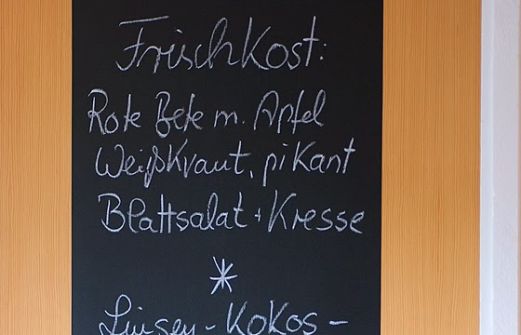 Frischkost:
Rote Bete m. Apfel
Weißkraut, pikant
Blattsalat + Kresse
*
Linsen-Kokos-